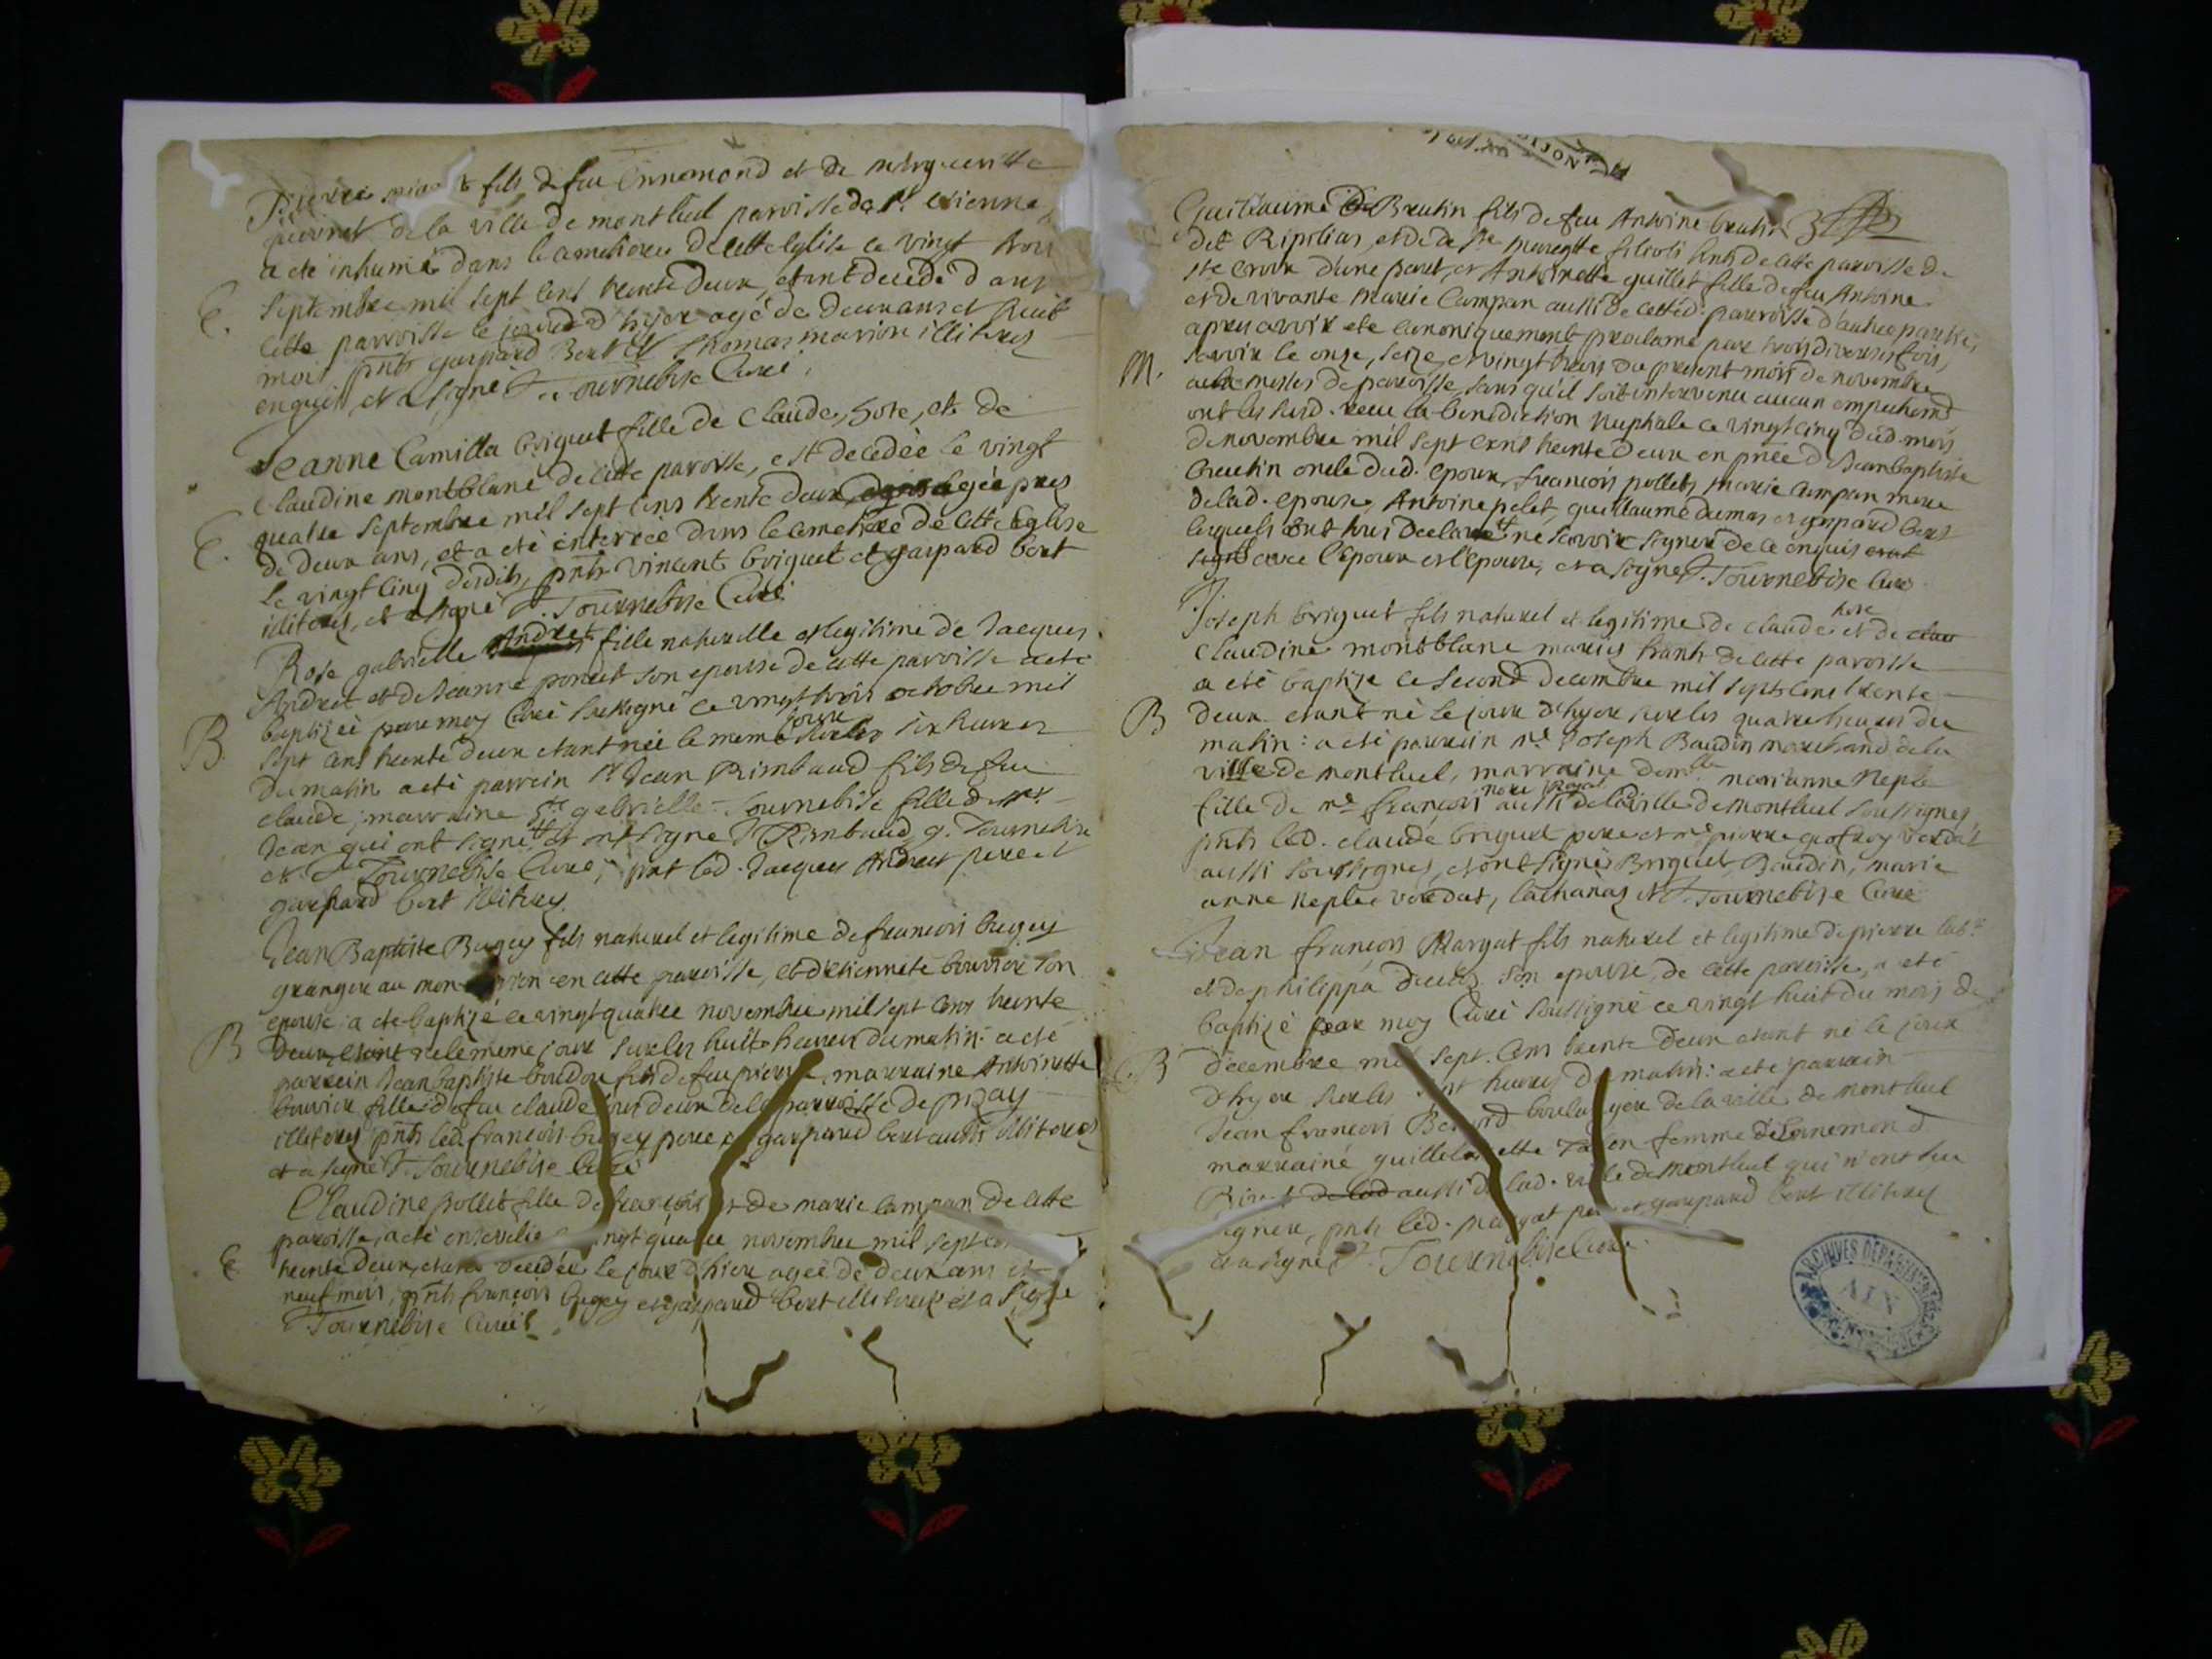 Pierre fils de feu Ennemond et de Marguerite
de la ville de montluel parroisse de St. etienne
a eté inhumé dans le cimetiere de cette Eglise ce vingt trois
E. septembre mil sept cent trente deux, etant decedé dans
cette parroisse le jour d'hyer agé de deux ans et huit
mois pnts gaspard Bert et Thomas marion illiteres
enquis, et a signé F. Tournebise Curé.
Jeanne Camilla briguet fille de Claude, hote, et de
Claudine montblanc de cette paroisse, est decedée le vingt
quatre septembre mil sept cens trente deux agée pres
E. de deux ans, et a eté enterrée dans le cimetiere de cette Eglise
le vingt cinq desdits, pnts vincent briguet et gaspard bert
illiteres, et a signé F. Tournebise Curé
Rose gabrielle Andret fille naturelle et legitime de Jacques
Andret et de Jeanne poncet son epouse de cette parroisse a eté
baptizée par moy Curé soussigné ce vingt trois octobre mil
B. sept cens trente deux etant née le meme jour sur les six heures
du matin a eté parrein Sr. Jean Rimbaud fils de feu
claude, marraine Dlle gabrielle Tournebise fille de Mr.
Jean qui ont signé Rimbaud, g. Tournebise
et F. Tournebise Curé; pnt led. Jacques Andret pere et
gaspard bert illiteres
Jean Baptiste Bugey fils naturel et legitime de francois bugey
granger au en cette paroisse, et d'etiennete bouvier son
epouse a eté baptizé ce vingt quatre novembre mil sept cens trente
B deux, etant né le meme jour sur les huit heures du matin: a eté
parrein Jean baptiste fils de feu pierre, marraine Antoinette
bouvier fille de feu claude tous deux de la parroisse de pizay
illiteres pnts led. francois bugey pere et gaspard bert aussi illiteres
et a signé F. Tournebise Curé
Claudine pollet fille de francois et de marie campan de cette
paroisse, a eté ensevelie vingt quatre novembre mil sept
E trente deux, etant decedée le jour d'hier agée de deux ans et
neuf mois, pnts francois bugey et gaspard bert illiteres et a signé
F. Tournebise Curé
Guillaume Brutin fils de feu Antoine brutin
dit Ripolias, et de margtte hnts de cette paroisse de
ste croix d'une part, et Antoinette guillet fille de feu Antoine
et de vivante Marie Campan aussi de cetted. parroisse d'autre part
apres avoir eté canoniquement proclamé par trois diverses fois,
M. scavoir le onze, seize, et vingt trois du present mois de novembre
messes de paroisse sans qu'il soit intervenu aucun empechemt
ont les susd. receu la benediction nuptiale ce vingt cinq dud. mois
de novembre mil sept cens trente deux en pnce de Jean baptiste
brutin oncle dud. epoux, francois pollet, marie campan mere
de lad. epouse, Antoine pelet, guillaume dumas et gaspard bert
lesquels ont tous declaré ne scavoir signer de ce enquis
avec l'epoux et l'epouse, et a signé F. Tournebise Curé
Joseph briguet fils naturel et legitime de claude hote et de
Claudine montblanc mariés hants de cette paroisse
a eté baptizé ce second decembre mil sept cens trente
B deux etant né le jour d'hyer sur les quatre heures du
matin: a eté parrein me. Joseph Baudin marchand de la
ville de montluel, marraine demlle marianne Neple
fille de me francois notre Royal aussi de la ville de montluel soussignés
pnts led. claude briguet pere et me pierre geofroy verdat
aussi soussignés, et ont signés Briguet, Baudin, marie
anne neple, verdat, Lachanas et F. Tournebise Curé
Jean françois Margat fils naturel et legitime de pierre labr
et de philippa son epouse, de cette paroisse, a eté
baptizé par moy Curé soussigné ce vingt huit du mois de
B decembre mil sept. cens trente deux etant né le jour
d'hyer sur les sept heures du matin: a eté parrein
Jean francois boulanger de la ville de montluel
marrainé guillelmette femme de Ennemond
aussi de lad. ville de montluel qui n'ont sceu
signer, pnts led. margat pere et gaspard bert illiteres
et a signé F. Tournebise Curé.
ARCHIVES DÉPARTEMENTALES
AIN